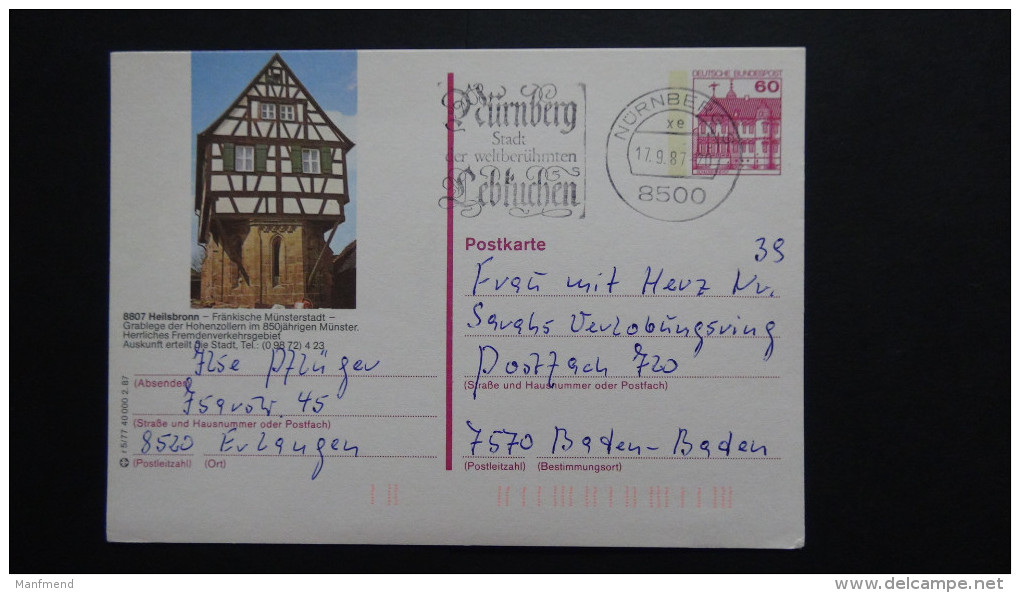 8807 Heilsbronn – Fränkische Münsterstadt –
Grablege der Hohenzollern im 850jährigen Münster.
Herrliches Fremdenverkehrsgebiet
Auskunft erteilt die Stadt, Tel.: (0 98 72) 4 23
Ilse Pflüger
(Absender)
Isarstr. 45
(Straße und Hausnummer oder Postfach)
8520 Erlangen
(Postleitzahl) (Ort)
r 5/77 40 000 2.87
Nürnberg
Stadt
der weltberühmten
Lebkuchen
NÜRNBERG
xe
17.9.87
8500
DEUTSCHE BUNDESPOST
60
Postkarte
39
Frau mit Herz Nr.
Sarahs Verlobungsring
Postfach 720
(Straße und Hausnummer oder Postfach)
7570 Baden-Baden
(Postleitzahl) (Bestimmungsort)
Manfmend
delcampe.net